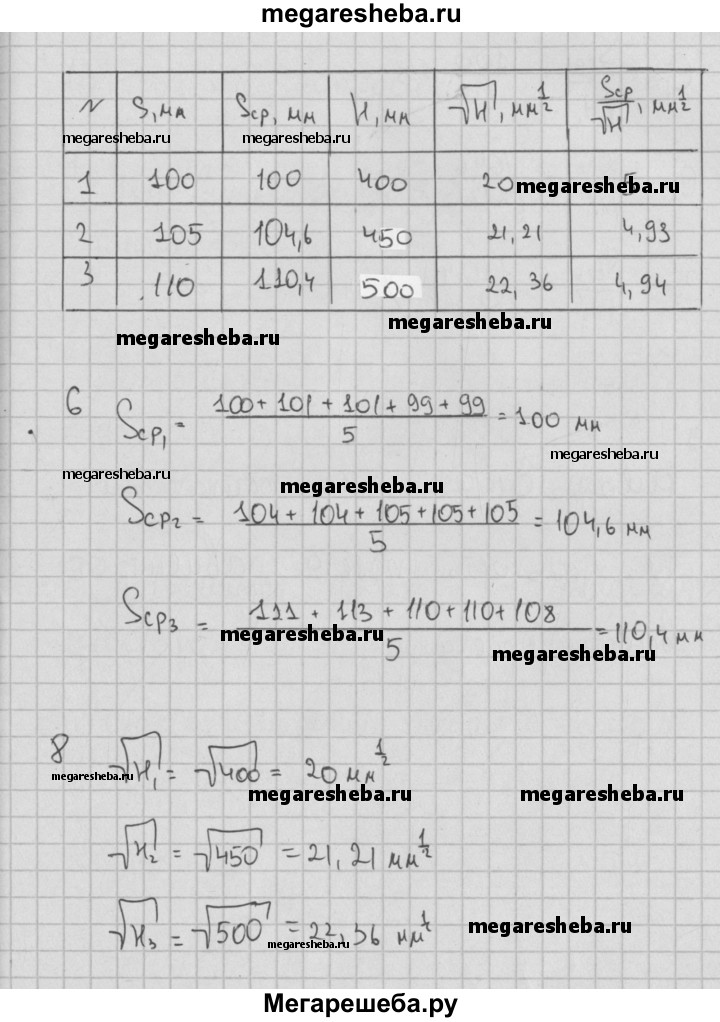 megaresheba.ru
N | S, мм | Sср, мм | H, мм | √H, мм^½ | Sср/√H, мм^½
megaresheba.ru megaresheba.ru
1 | 100 | 100 | 400 | 20 | 5
megaresheba.ru
2 | 105 | 104,6 | 450 | 21,21 | 4,93
3 | 110 | 110,4 | 500 | 22,36 | 4,94
megaresheba.ru
megaresheba.ru
6 Sср₁ = (100 + 101 + 101 + 99 + 99)/5 = 100 мм
megaresheba.ru
megaresheba.ru
megaresheba.ru
Sср₂ = (104 + 104 + 105 + 105 + 105)/5 = 104,6 мм
Sср₃ = (111 + 113 + 110 + 110 + 108)/5 = 110,4 мм
megaresheba.ru
megaresheba.ru
8 √H₁ = √400 = 20 мм^½
megaresheba.ru
megaresheba.ru
megaresheba.ru
√H₂ = √450 = 21,21 мм^½
√H₃ = √500 = 22,36 мм^½
megaresheba.ru
megaresheba.ru
Мегарешеба.ру